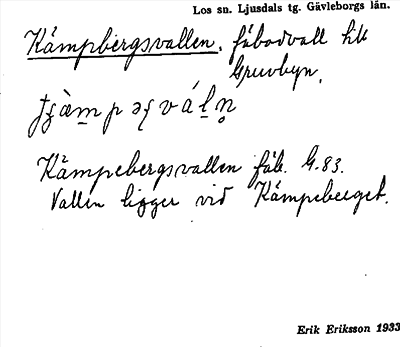 Los sn. Ljusdals tg. Gävleborgs län.
Kämpbergsvallen, fäbodvall till
Gruvbyn.
Kämpebergsvallen fäb. G.83.
Vallen ligger vid Kämpeberget.
Erik Eriksson 1933